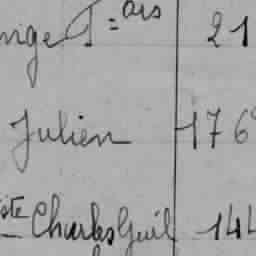 nige Fçois 21
Julien 176
iste Charles Guil 144